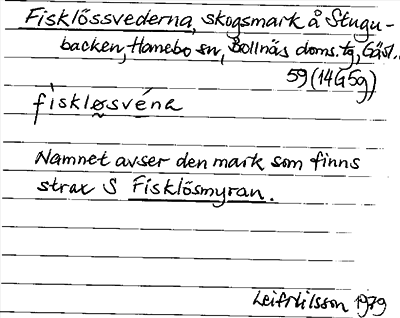 Fisklössvederna, skogsmark å Stugu-
backen, Hanebo sn, Bollnäs doms. tg, Gävl.
59 (14G5g)
fìskløsvéna
Namnet avser den mark som finns
strax S Fisklösmyran.
Leif Nilsson 1979